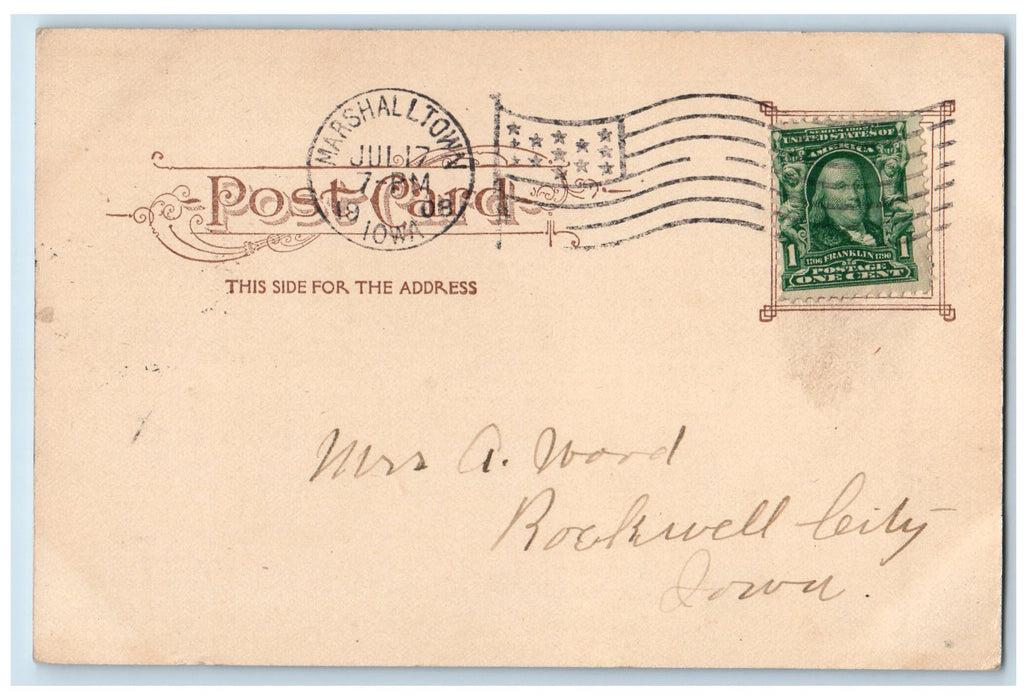 MARSHALLTOWN
JUL 17
7 - PM
19 08
IOWA
SERIES 1902
UNITED STATES OF
AMERICA
1 1
1706 FRANKLIN 1790
POSTAGE
ONE CENT
Post Card
THIS SIDE FOR THE ADDRESS
Mrs A. Wood
Rockwell City
Iowa.